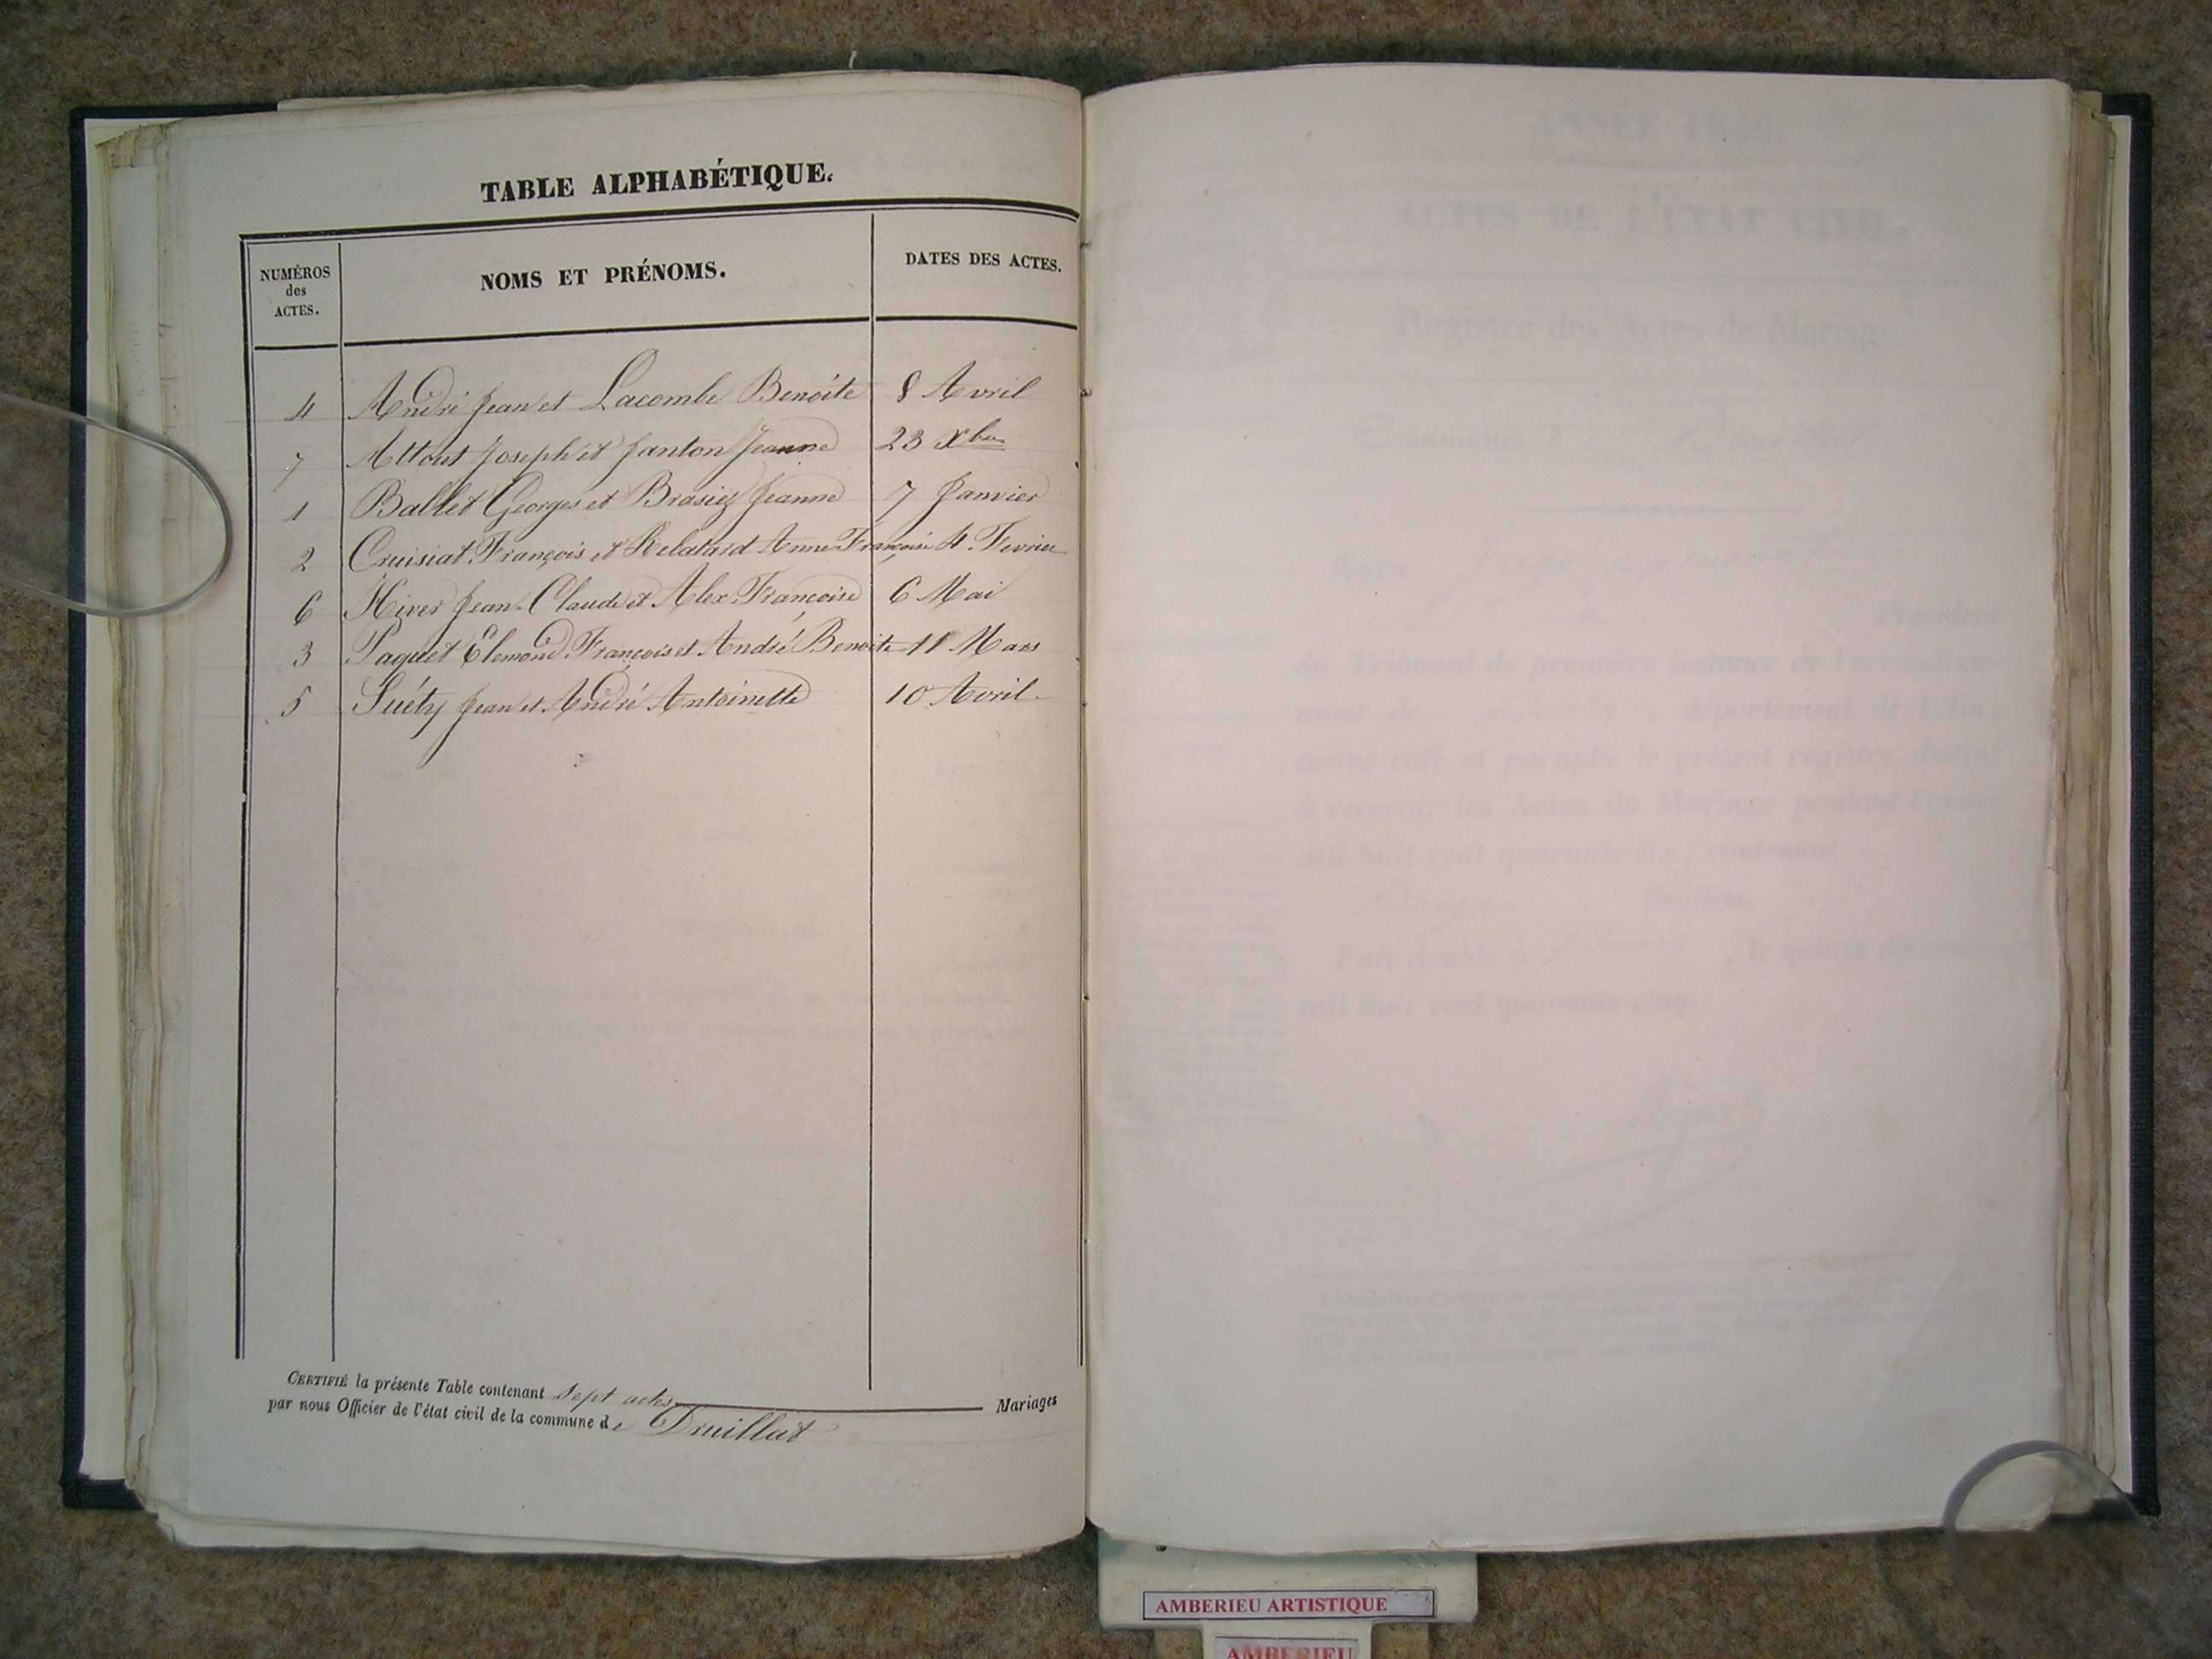 TABLE ALPHABÉTIQUE.
NUMÉROS des ACTES. NOMS ET PRÉNOMS. DATES DES ACTES.
4 André Jean et Lacombe Benoite 8 Avril
7 Joseph et Janton Jeanne 23 Xbre
1 Ballet Georges et Brasiez Jeanne 7 Janvier
2 Cruisiat François et Anne Françoise 4 Fevrier
6 Hiver Jean-Claude et Alex Françoise 6 Mai
3 Paquet François et André Benoite 11 Mars
5 Suéty Jean et André Antoinette 10 Avril
CERTIFIÉ la présente Table contenant sept actes Mariages
par nous Officier de l'état civil de la commune de Druillat
ACTES DE L'ÉTAT CIVIL.
Registre des Actes de Mariage
Président
du Tribunal de première instance de l'arrondisse-
ment de , département de l'Ain,
avons coté et paraphé le présent registre destiné
à recevoir les Actes de Mariage pendant l'année
mil huit cent quarante-six, contenant
feuillets.
Fait double à , le quinze décembre
mil huit cent quarante-cinq.
AMBERIEU ARTISTIQUE
AMBERIEU